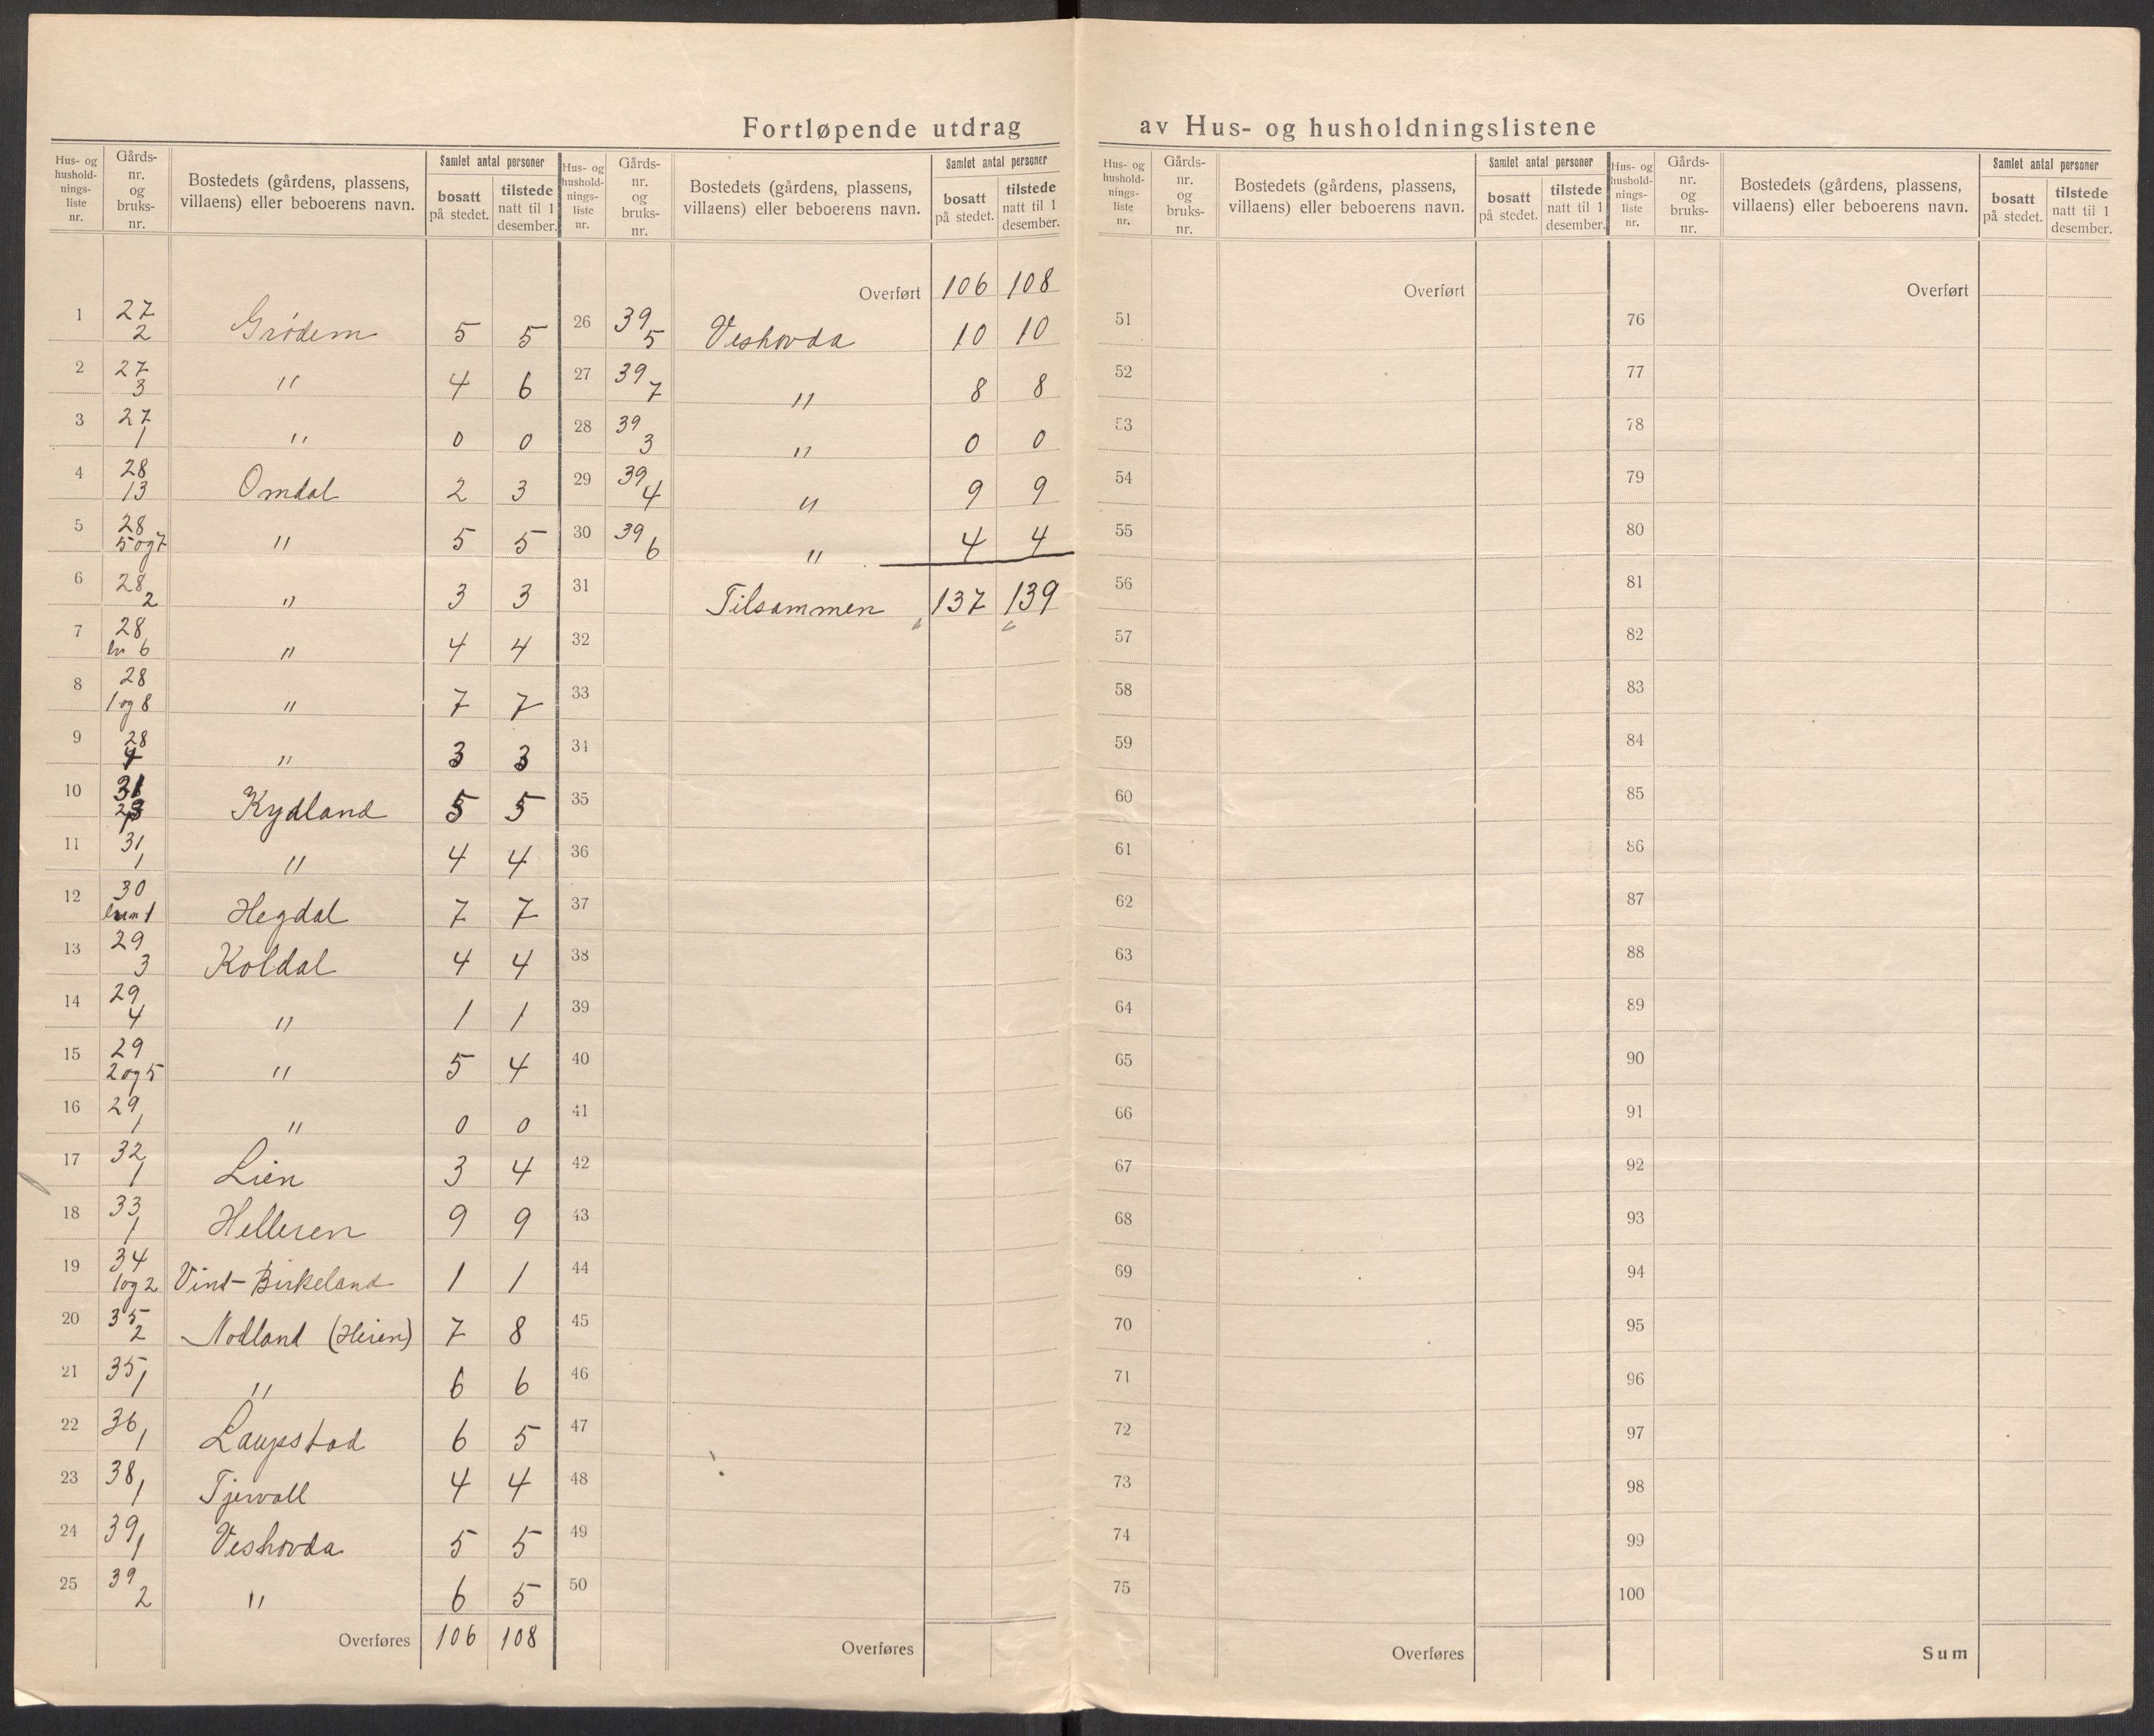 Fortløpende utdrag av Hus- og husholdningslistene
Hus- og hushold-nings-liste nr. | Gårds-nr. og bruks-nr. | Bostedets (gårdens, plassens, villaens) eller beboerens navn. | Samlet antal personer | bosatt på stedet. | tilstede natt til 1 desember.
1 | 27 2 | Grødem | 5 | 5
2 | 27 3 | " | 4 | 6
3 | 27 1 | " | 0 | 0
4 | 28 13 | Omdal | 2 | 3
5 | 28 5 og 7 | " | 5 | 5
6 | 28 2 | " | 3 | 3
7 | 28 br 6 | " | 4 | 4
8 | 28 1 og 8 | " | 7 | 7
9 | 28 4 | " | 3 | 3
10 | 31 | Kydland | 5 | 5
11 | 31 1 | " | 4 | 4
12 | 30 1 | Hegdal | 7 | 7
13 | 29 3 | Koldal | 4 | 4
14 | 29 4 | " | 1 | 1
15 | 29 2 og 5 | " | 5 | 4
16 | 29 1 | " | 0 | 0
17 | 32 1 | Lien | 3 | 4
18 | 33 1 | Helleren | 9 | 9
19 | 34 1 og 2 | Vint-Birkeland | 1 | 1
20 | 35 2 | Nodland (Heien) | 7 | 8
21 | 35 1 | " | 6 | 6
22 | 36 1 | Laupstad | 6 | 5
23 | 38 1 | Tjervall | 4 | 4
24 | 39 1 | Veshovda | 5 | 5
25 | 39 2 | " | 6 | 5
Overføres | 106 | 108
Hus- og hushold-nings-liste nr. | Gårds-nr. og bruks-nr. | Bostedets (gårdens, plassens, villaens) eller beboerens navn. | Samlet antal personer | bosatt på stedet. | tilstede natt til 1 desember.
Overført | 106 | 108
26 | 39 5 | Veshovda | 10 | 10
27 | 39 7 | " | 8 | 8
28 | 39 3 | " | 0 | 0
29 | 39 4 | " | 9 | 9
30 | 39 6 | " | 4 | 4
31 | Tilsammen | 137 | 139
32
33
34
35
36
37
38
39
40
41
42
43
44
45
46
47
48
49
50
Overføres
Hus- og hushold-nings-liste nr. | Gårds-nr. og bruks-nr. | Bostedets (gårdens, plassens, villaens) eller beboerens navn. | Samlet antal personer | bosatt på stedet. | tilstede natt til 1 desember.
Overført
51
52
53
54
55
56
57
58
59
60
61
62
63
64
65
66
67
68
69
70
71
72
73
74
75
Overføres
Hus- og hushold-nings-liste nr. | Gårds-nr. og bruks-nr. | Bostedets (gårdens, plassens, villaens) eller beboerens navn. | Samlet antal personer | bosatt på stedet. | tilstede natt til 1 desember.
Overført
76
77
78
79
80
81
82
83
84
85
86
87
88
89
90
91
92
93
94
95
96
97
98
99
100
Sum